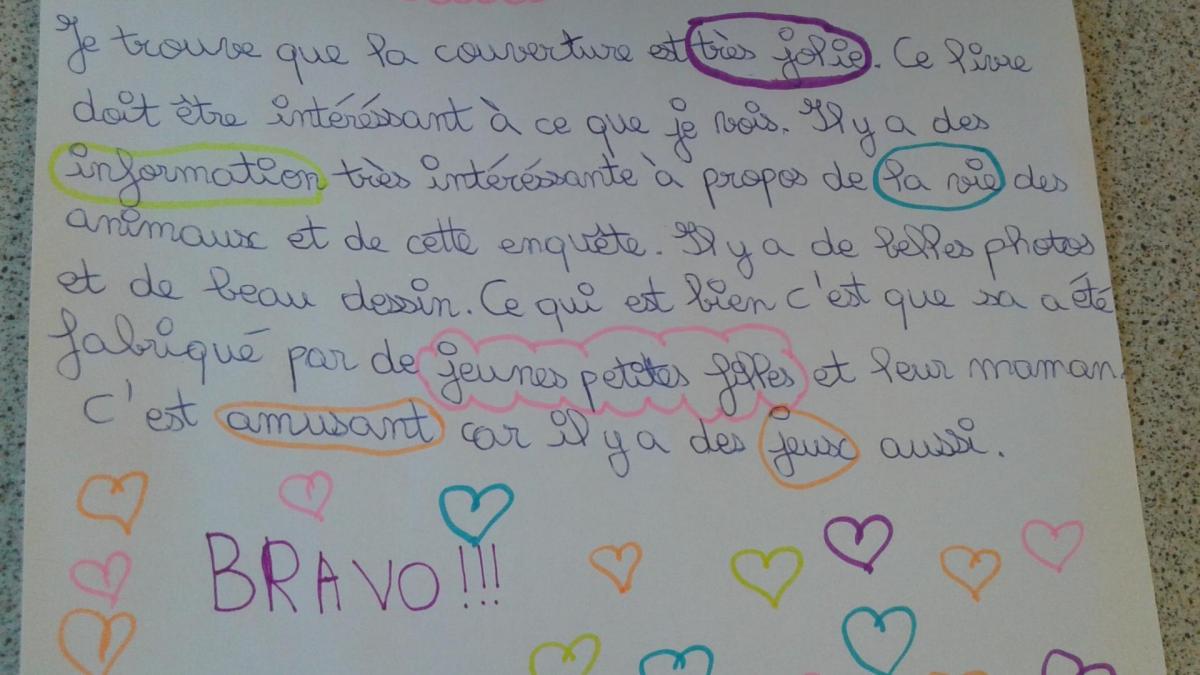 Je trouve que la couverture est très jolie. Ce livre
doit être intéréssant à ce que je vois. Il y a des
information très intéréssante à propos de la vie des
animaux et de cette enquête. Il y a de belles photos
et de beau dessin. Ce qui est bien c'est que sa a été
fabriqué par de jeunes petites filles et leur maman.
C'est amusant car il y a des jeux aussi.
BRAVO!!!